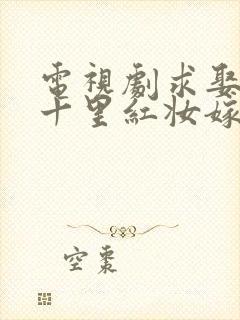 電視劇求娶
十里紅妝嫁
空棗